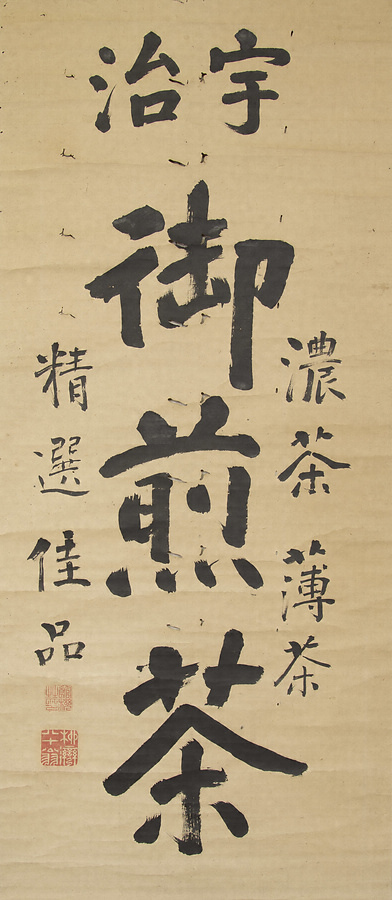 宇治
御煎茶
濃茶薄茶
精選佳品